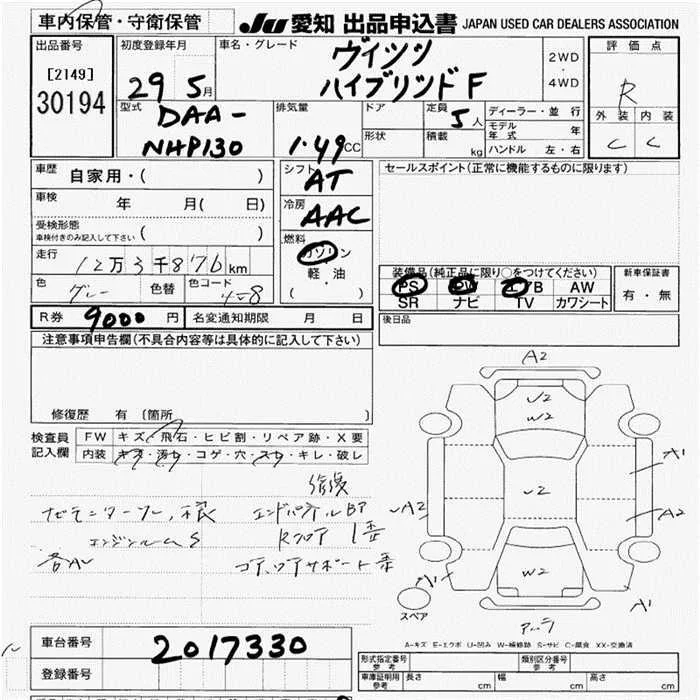 車内保管・守衛保管
JU 愛知 出品申込書 JAPAN USED CAR DEALERS ASSOCIATION
出品番号
[2149]
30194
初度登録年月
29 5月
車名・グレード
ヴィッツ
ハイブリッド F
2WD
4WD
評価点
R
外装 内装
C C
型式
DAA-
NHP130
排気量
1.49CC
ドア
形状
定員
5人
積載
kg
ディーラー・並行
モデル年式 年
ハンドル 左・右
車歴
自家用・( )
車検
年 月( 日)
受検形態
車検付きのみ記入して下さい ( )
走行
12万3千876km
色
グレー
色替
色コード
シフト
AT
冷房
AAC
燃料
ガソリン
軽・油
( )
セールスポイント(正常に機能するものに限ります)
装備品(純正品に限り○をつけてください)
PS PW エアB AW
SR ナビ TV カワシート
新車保証書
有・無
後日品
R券 9000 円
名変通知期限 月 日
注意事項申告欄(不具合内容等は具体的に記入して下さい)
修復歴 有 [箇所 ]
検査員
記入欄
FW キズ・飛石・ヒビ割・リペア跡・X要
内装 キズ・汚れ・コゲ・穴・スレ・キレ・破レ
修復
エンジンルームS
Rフロア
A2
U2
W2
U2
W2
A1
A2
A2
A1
A1
スペア
A-キズ E-エクボ U-凹み W-補修跡 S-サビ C-腐食 XX-交換済
車台番号
2017330
登録番号
形式指定番号
参考
類別区分番号
参考
車庫証明用
参考
長さ cm
幅 cm
高さ cm